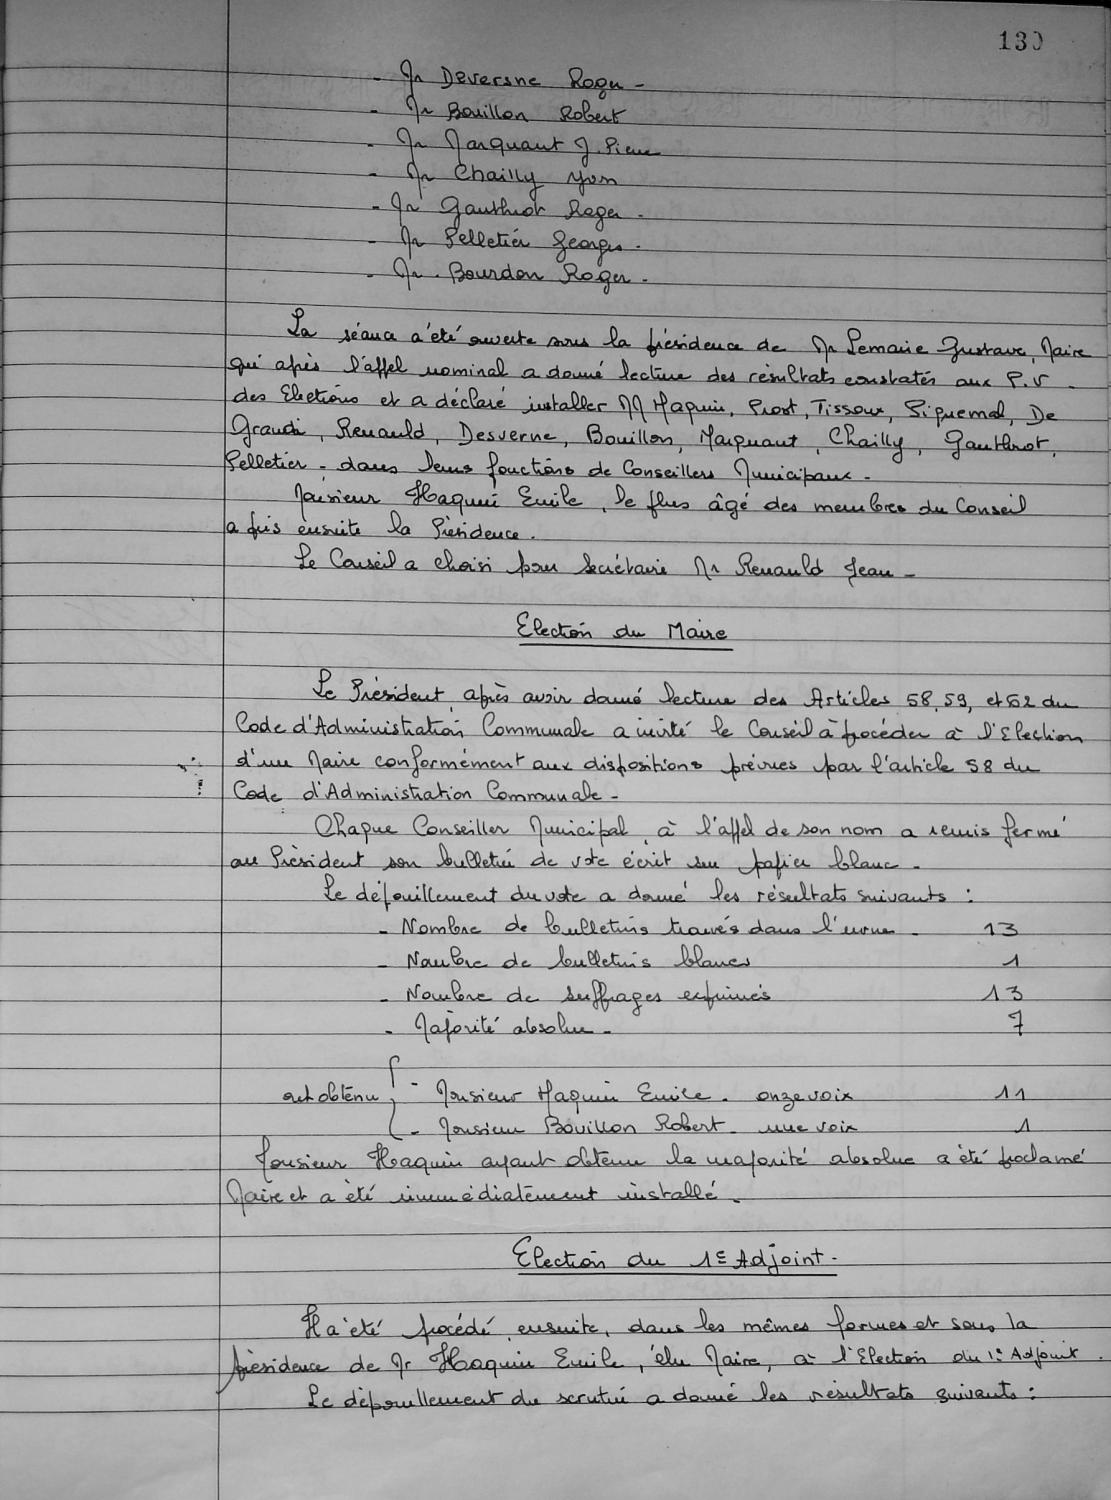 130
- Mr Deversne Roger -
- Mr Bouillon Robert
- Mr Marquant J. Pierre
- Mr Chailly Yvon
- Mr Gauthrot Roger -
- Mr Pelletier Georges -
- Mr. Bourdon Roger -
La séance a été ouverte sous la présidence de Mr Lemaire Gustave, Maire
qui après l'appel nominal a donné lecture des résultats constatés aux P.V -
des Elections et a déclaré installer MM Haquin, Prost, Tissoux, Piquemal, De
Grandi, Renauld, Desverne, Bouillon, Marquant, Chailly, Gauthrot,
Pelletier - dans leurs fonctions de Conseillers Municipaux -
Monsieur Haquin Emile, le plus âgé des membres du Conseil
a pris ensuite la Présidence.
Le Conseil a choisi pour Secrétaire Mr Renauld Jean -
Election du Maire
Le Président, après avoir donné lecture des Articles 58, 59, et 62 du
Code d'Administration Communale a invité le Conseil à procéder à l'Election
d'un Maire conformément aux dispositions prévues par l'article 58 du
Code d'Administration Communale -
Chaque Conseiller Municipal, à l'appel de son nom a remis fermé
au Président son bulletin de vote écrit sur papier blanc -
Le dépouillement du vote a donné les résultats suivants :
- Nombre de bulletins trouvés dans l'urne - 13
- Nombre de bulletins blancs 1
- Nombre de suffrages exprimés 13
- Majorité absolue - 7
ont obtenu { - Monsieur Haquin Emile - onze voix 11
- Monsieur Bouillon Robert - une voix 1
Monsieur Haquin ayant obtenu la majorité absolue a été proclamé
Maire et a été immédiatement installé -
Election du 1E Adjoint -
Il a été procédé ensuite, dans les mêmes formes et sous la
présidence de Mr Haquin Emile, élu Maire, à l'Election du 1E Adjoint.
Le dépouillement du scrutin a donné les résultats suivants :